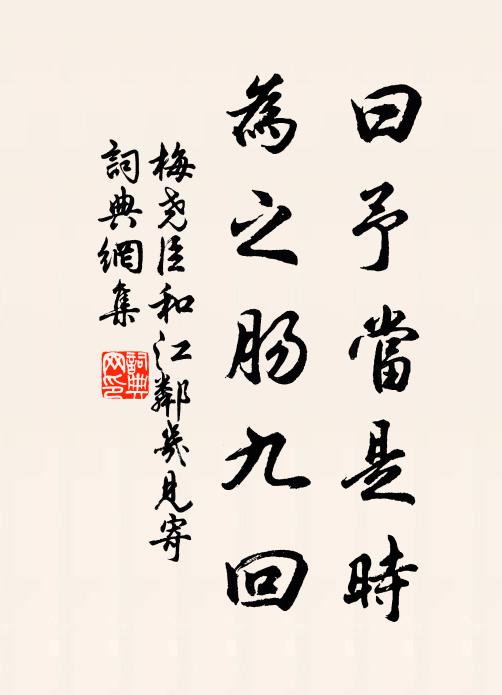 曰予當是時
為之肠九回
梅尧臣和江鄰幾見寄
詞典網集
詞典網印